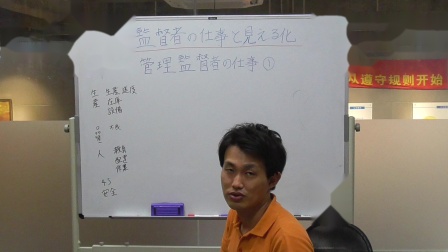 監督者の仕事と見える化
管理監督者の仕事①
生産 生産進度
在庫
設備
品質 不良
人 教育
配置
作業
4S
安全
从遵守规则开始